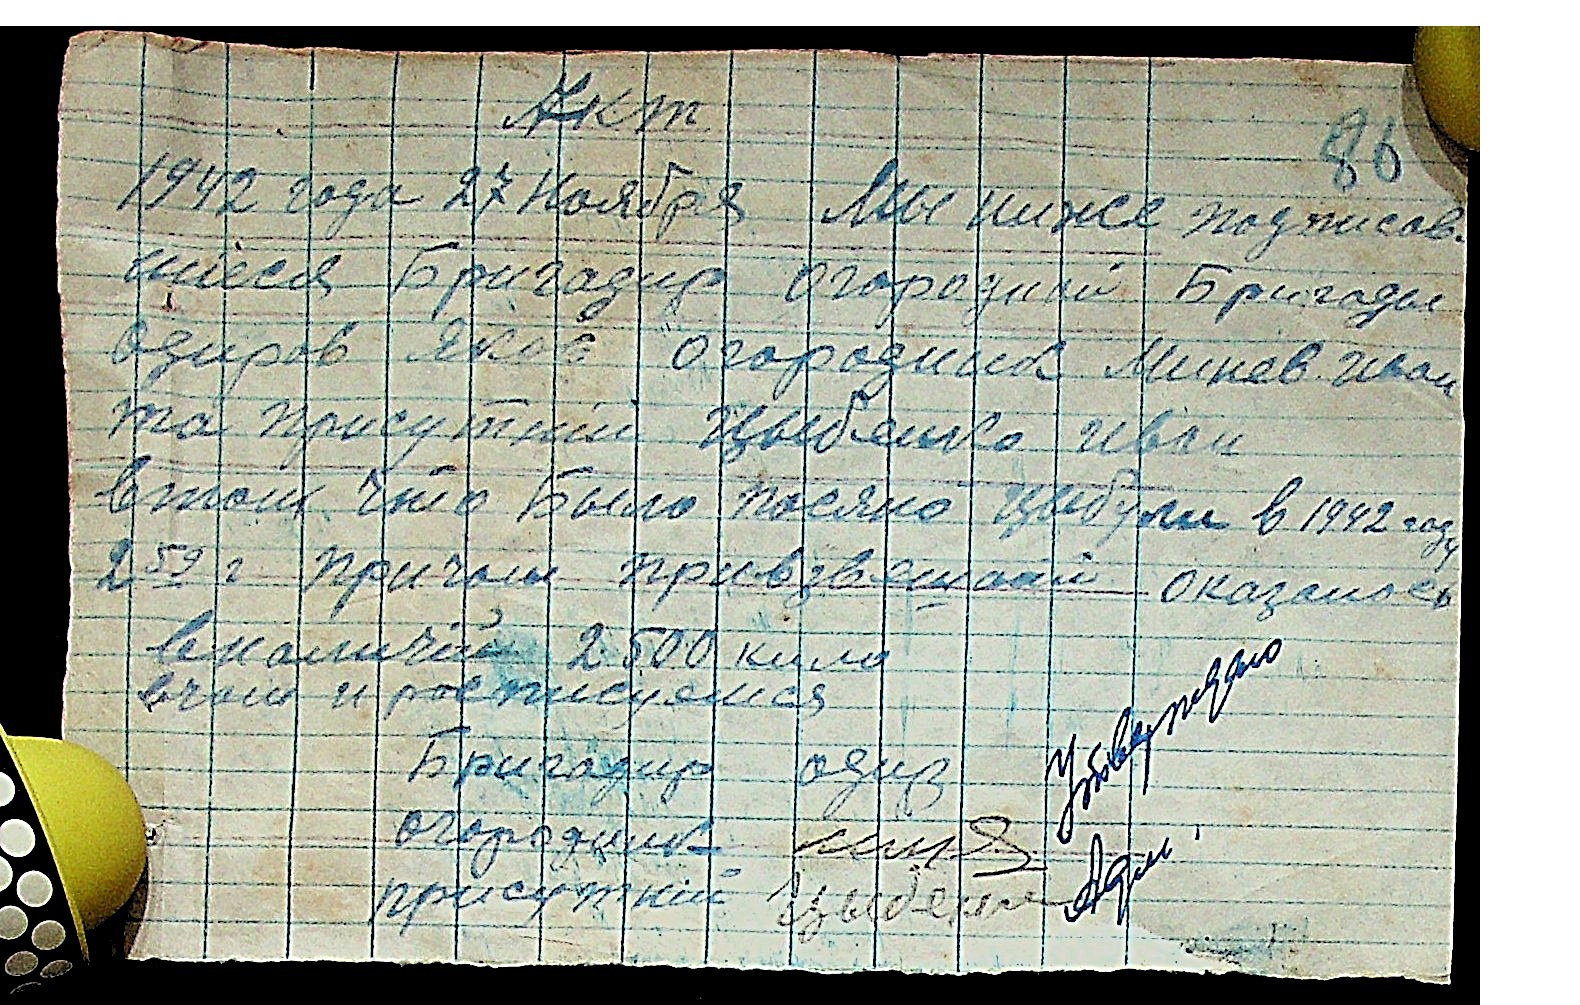 Акт
86
1942 года 27 Ноября Мы ниже подписав-
шіеся Бригадир огородній Бригады
одиров Яков огородник Минев Иван
та присутній Цыбенко иван
втом что было посяно Цыбули в 1942 году
2 59 г причом привзвешаній оказалось
вналичій 2500 кило
вчом и росписуемся
Бригадир одир
огородник
присутній Цыбенко
Утверждаю